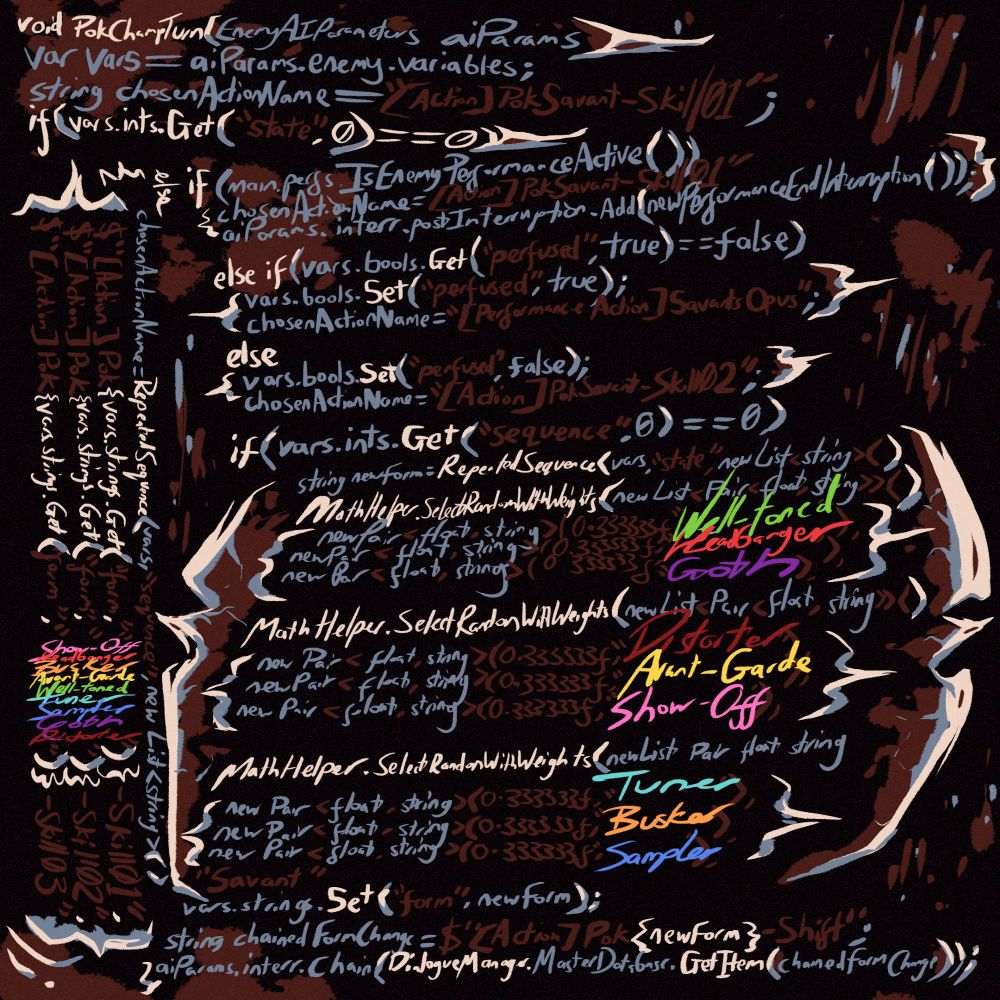 void PokChampTurn(EnemyAIParameters aiParams
var vars = aiParams.enemy.variables;
string chosenActionName = "[Action]PokSavant-Skill01";
if(vars.ints.Get("state",0)==0
if (main.perfs.IsEnemyPerformanceActive())
chosenActionName="[Action]PokSavant-Skill01"
aiParams.interr.postInterruption.Add(newPerformanceEndInterruption());
else if(vars.bools.Get("perfused",true)==false)
{
vars.bools.Set("perfused",true);
chosenActionName="[Performance Action]SavantsOpus";
}
else
{
vars.bools.Set("perfused",false);
chosenActionName="[Action]PokSavant-Skill02";
}
if(vars.ints.Get("sequence",0)==0)
string newform=RepeatedSequence(vars,"state",new List<string>()
MathHelper.SelectRandomWithWeights(new List<Pair<float string>>()
newPair<float string>(0.33333f, Well-toned
newPair<float, string>(0.33333f, Headbanger
new Pair<float, string>(0.33333f, Goth
MathHelper.SelectRandonWithWeights(newList<Pair<float string>>()
new Pair<float string>(0.33333f, Distorter
newPair<float, string>(0.33333f, Avant-Garde
new Pair<float, string>(0.33333f, Show-Off
MathHelper.SelectRandonWithWeights(newList Pair float string
new Pair<float, string>(0.33333f, Tuner
new Pair<float, string>(0.33333f, Busker
new Pair<float, string>(0.33333f, Sampler
"Savant"
vars.strings.Set("form",newform);
string chainedFormChange=$"[Action]Pok{newForm}-Shift";
aiParams.interr.Chain(DialogueManager.MasterDatabase.GetItem(chainedFormChange));
}
else
chosenActionName=RepeatedSequence(vars,"sequence",new List<string>()
$"[Action]Pok{vars.strings.Get("form"
$"[Action]Pok{vars.string.Get("form"
$"[Action]Pok{vars.string.Get("form"
Show-Off
Headbanger
Busker
Avant-Garde
Well-toned
Tuner
Sampler
Goth
Distorter
-Skill01"
-Skill02"
-Skill03"